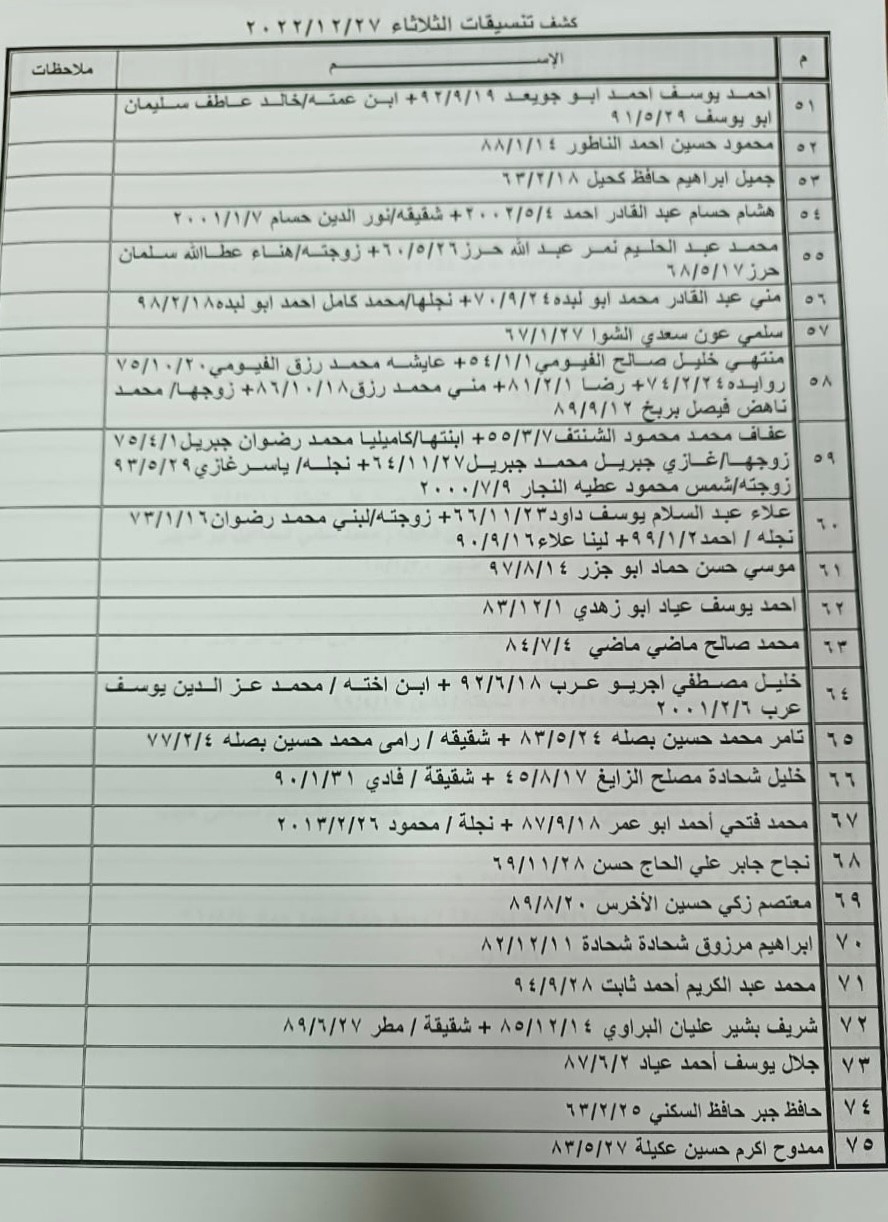 كشف تنسيقات الثلاثاء ٢٠٢٢/١٢/٢٧
م الإســـــــــــم ملاحظات
٥١ احمد يوسف احمد ابو جويعد ٩٢/٩/١٩+ ابن عمته/خالد عاطف سليمان
ابو يوسف ٩١/٥/٢٩
٥٢ محمود حسين احمد الناطور ٨٨/١/١٤
٥٣ جميل ابراهيم حافظ كحيل ٦٣/٢/١٨
٥٤ هشام حسام عبد القادر احمد ٢٠٠٢/٥/٤+ شقيقه/نور الدين حسام ٢٠٠١/١/٧
٥٥ محمد عبد الحليم نمر عبد الله حرز٦٠/٥/٢٦+ زوجته/هناء عطاالله سلمان
حرز٦٨/٥/١٧
٥٦ مني عبد القادر محمد ابو لبده٧٠/٩/٢٤+ نجلها/محمد كامل احمد ابو لبده٩٨/٢/١٨
٥٧ سلمي عون سعدي الشوا ٦٧/١/٢٧
٥٨ منتهي خليل صالح الفيومي٥٤/١/١+ عايشه محمد رزق الفيومي٧٥/١٠/٢٠
روايده٧٤/٢/٢٤+ رضا ٨١/٢/١+ مني محمد رزق٨٦/١٠/١٨+ زوجها/ محمد
ناهض فيصل بربخ ٨٩/٩/١٢
٥٩ عفاف محمد محمود الشنتف٥٥/٣/٧+ ابنتها/كاميليا محمد رضوان جبريل٧٥/٤/١
زوجها/غازي جبريل محمد جبريل٦٤/١١/٢٧+ نجله/ ياسر غازي٩٣/٥/٢٩
زوجته/شمس محمود عطيه النجار ٢٠٠٠/٧/٩
٦٠ علاء عبد السلام يوسف داود٦٦/١١/٢٣+ زوجته/لبني محمد رضوان٧٣/١/١٦
نجله / احمد٩٩/١/٢+ لينا علاء٩٠/٩/١٦
٦١ موسي حسن حماد ابو جزر ٩٧/٨/١٤
٦٢ احمد يوسف عياد ابو زهدي ٨٣/١٢/١
٦٣ محمد صالح ماضي ماضي ٨٤/٧/٤
٦٤ خليل مصطفي اجريو عرب ٩٢/٦/١٨ + ابن اخته / محمد عز الدين يوسف
عرب ٢٠٠١/٢/٦
٦٥ تامر محمد حسين بصله ٨٣/٥/٢٤ + شقيقه / رامى محمد حسين بصله ٧٧/٢/٤
٦٦ خليل شحادة مصلح الزايغ ٤٥/٨/١٧ + شقيقة / فادي ٩٠/١/٣١
٦٧ محمد فتحي أحمد ابو عمر ٨٧/٩/١٨ + نجلة / محمود ٢٠١٣/٢/٢٦
٦٨ نجاح جابر علي الحاج حسن ٦٩/١١/٢٨
٦٩ معتصم زكي حسين الأخرس ٨٩/٨/٢٠
٧٠ ابراهيم مرزوق شحادة شحادة ٨٢/١٢/١١
٧١ محمد عبد الكريم أحمد ثابت ٩٤/٩/٢٨
٧٢ شريف بشير عليان البراوي ٨٥/١٢/١٤ + شقيقة / مطر ٨٩/٦/٢٧
٧٣ جلال يوسف أحمد عياد ٨٧/٦/٢
٧٤ حافظ جبر حافظ السكني ٦٣/٢/٢٥
٧٥ ممدوح اكرم حسين عكيلة ٨٣/٥/٢٧